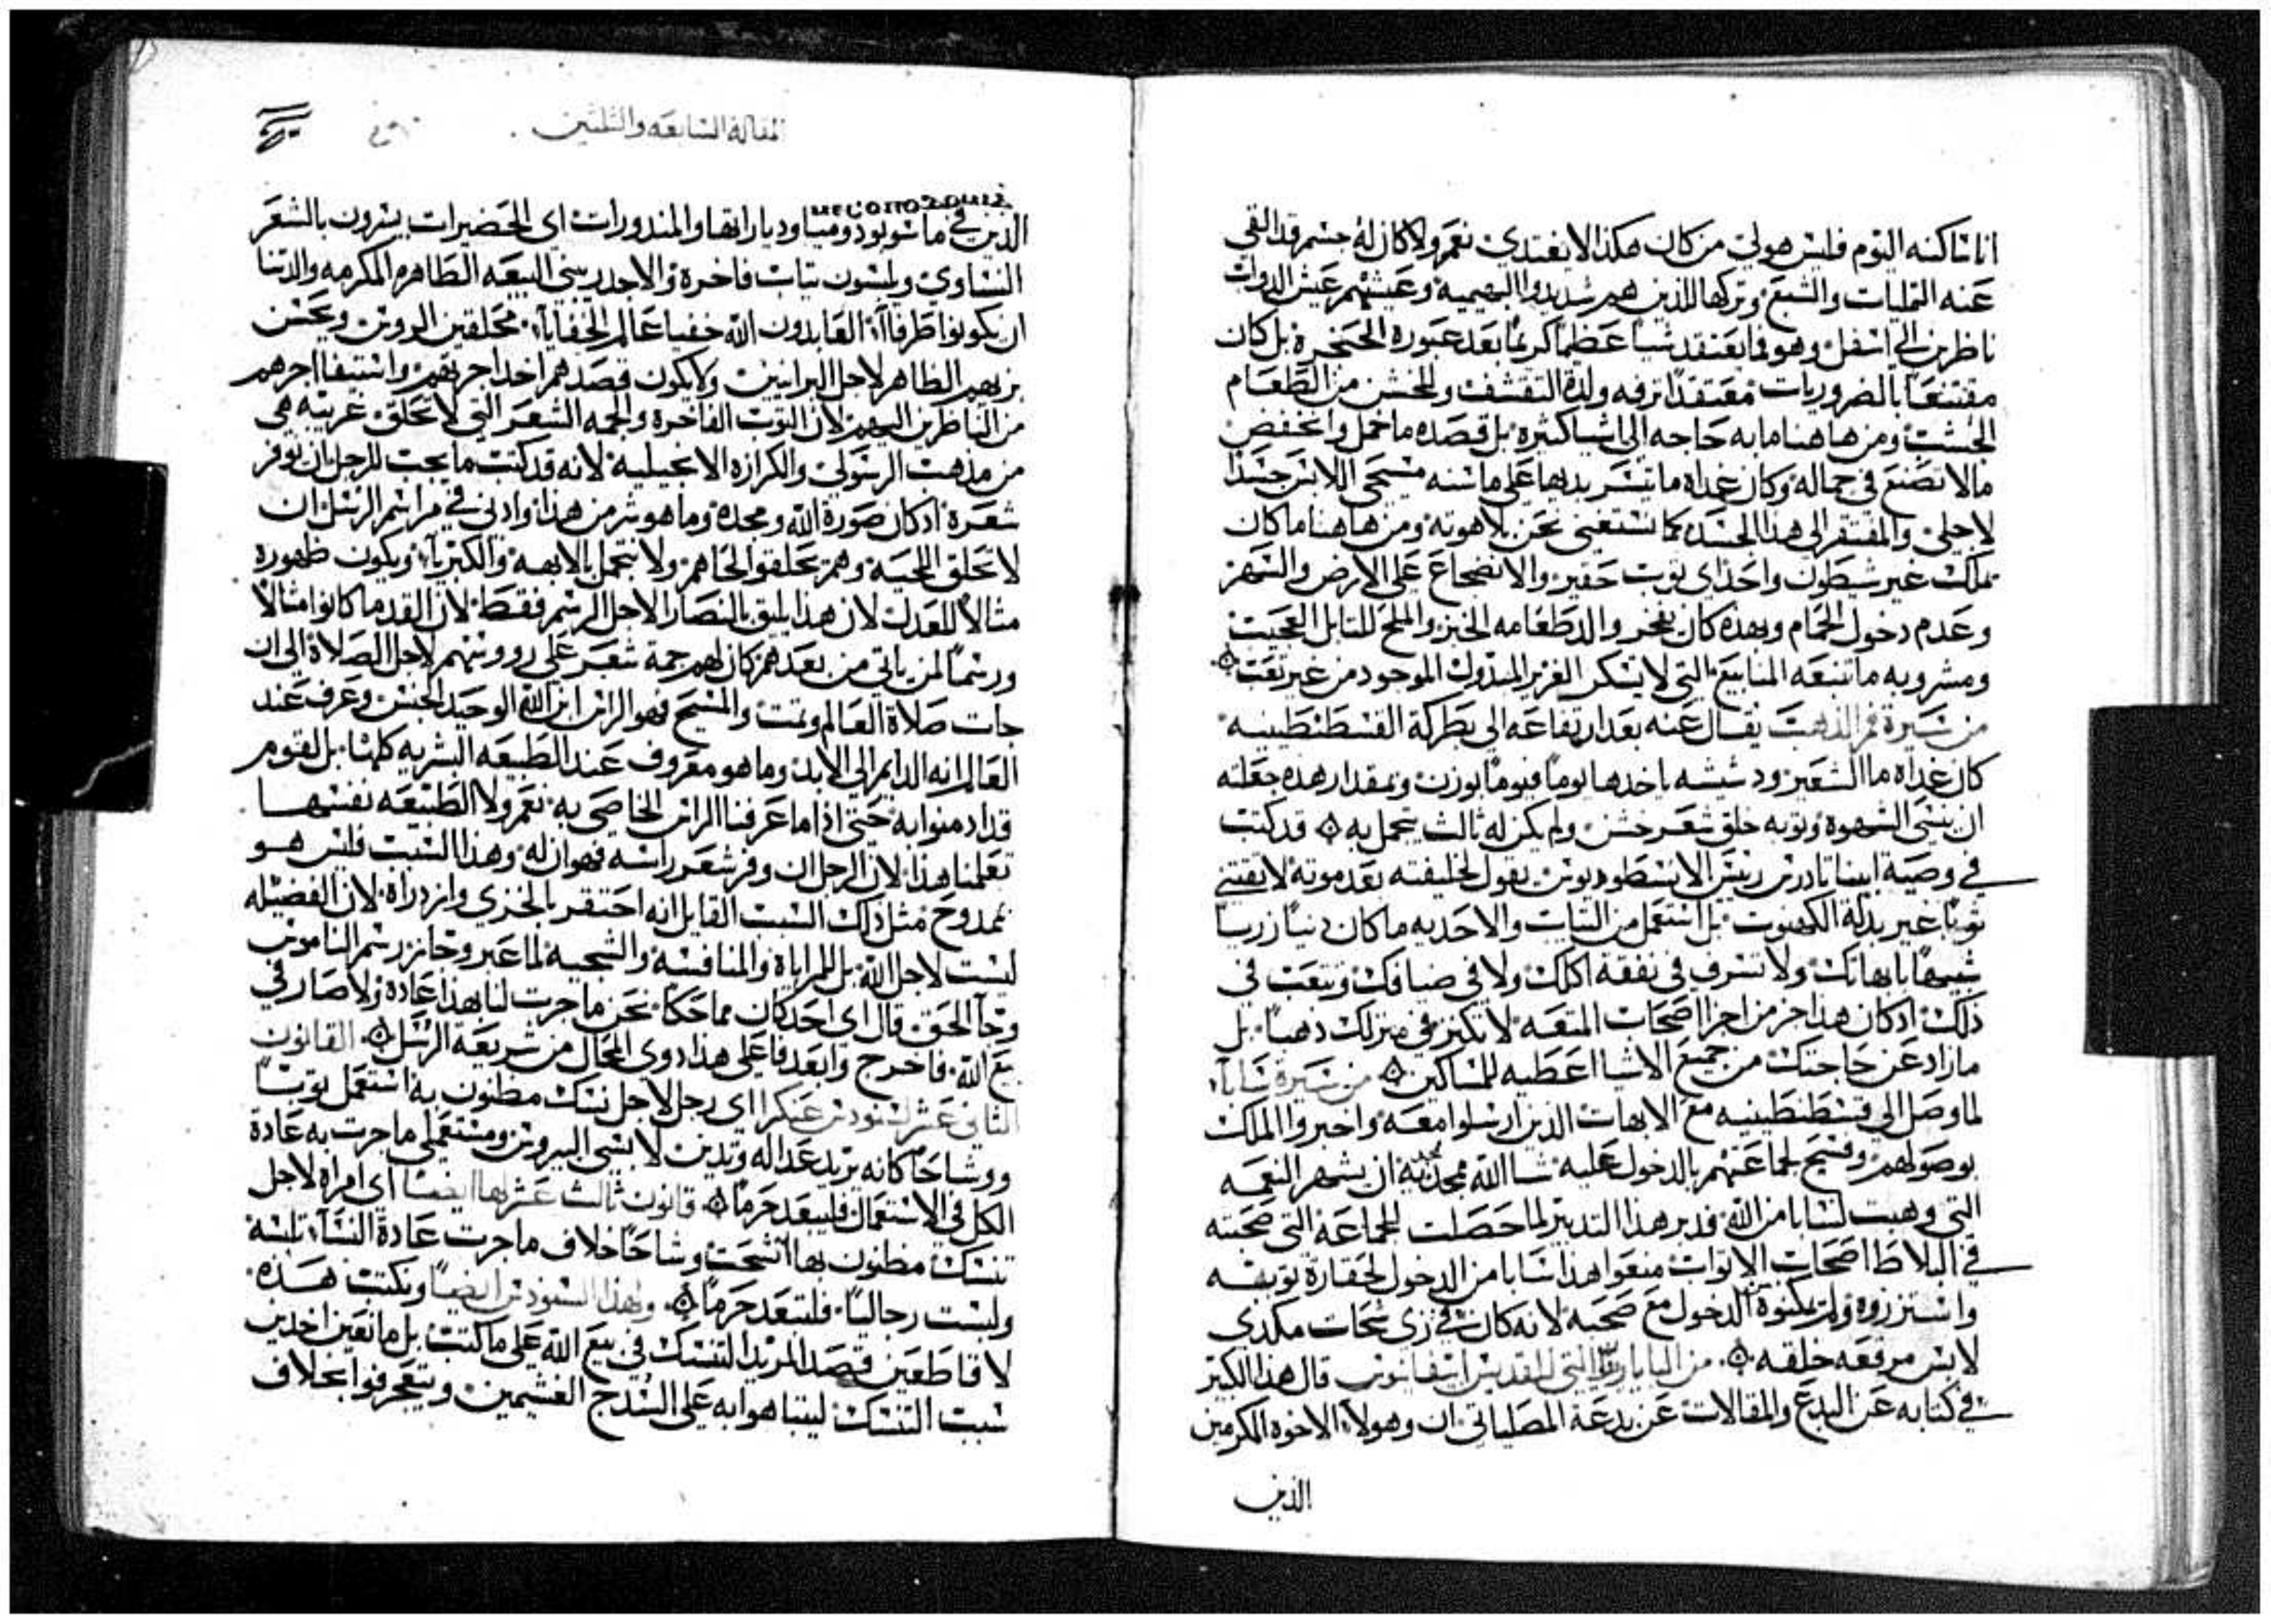 انا ساكنه اليوم فليس هولي من كان هكذا لا يغتدي نعم ولا كان له جسم قد القي
عنه التمليات والشبع وتركها للذين هم شديدوا البهيمية وعيشهم عيش الدواب
ناظرين الي اسفل وهو فما يعتقد شيا عظيما كريما بعد عبوره الحنجرة بل كان
مقتنعا بالضروريات معتقدا ترفه ولذة التقشف والخشن من الطعام
الخشب ومن هاهنا ما به حاجه الي اشيا كثيره بل قصده ما خمل وانخفض
مالا تصنع في جماله وكان غداه ما تيسر يدلها على ما سنه مسيحي اللابس جسدا
لاجلي والمفتقر الي هذا الجسد كما نستغني نحن بلاهوته ومن هاهنا ما كان
تملك غير شيطون واحد اي توب حقير والانضجاع على الارض والسهر
وعدم دخول الحمام وبهده كان يفخر والد طعامه الخبز والملح للتابل العجيب
ومشروبه ما تنبعه المنابيع التي لا تسكر الغزير المبدول الموجود من غير تعب
من سيرة فم الذهب يقال عنه بعد ارتفاعه الي بطركة القسطنطينيه
كان غداه ما الشعير ودشيشه ياخدها يوما فيوما بوزن وبمقدار هده جعلته
ان ينسي الشهوة وتوبه خلق شعر خشن ولم يكن له ثالث يتجمل به قد كتب
في وصية ابينا تادرس ريس الاسطوديون يقول لخليفته بعد موته لا تقتني
توبا غير بدلة الكهنوت بل استعمل من التياب والاحديه ما كان دنيا زريا
شبيها بابهاتك ولا تسرف في نفقة اكلك ولا في ضيافك وتتعب في
ذلك ادكان هدا جز من اجزا اصحاب المتعه لا تكنز في منزلك دهبا بل
ما زاد عن حاجتك من جميع الاشيا اعطيه للمساكين من سيرة سابا
لما وصل الي قسطنطينيه مع الابهات الذين ارسلوا معه واخبروا الملك
بوصولهم وفسح لجماعتهم بالدخول عليه شا الله ممجد ان يشهر النعمه
التي وهبت لسابا من الله فدبر هذا التدبير لما حصلت للجماعة التي صحبته
في البلاط اصحاب الابواب منعوا هذا سابا من الدخول لحقارة توبه
واستزروه ولم يمكنوه الدخول مع صحبه لانه كان في زي شحات مكدي
لابس مرقعه خلقه من الباناريا التي للقديس ابيفانيوس قال هذا الكبير
في كتابه عن البدع والمقالات عن بدعة المصلياني ان وهولاء الاخوه المكرمين
الذين
المقالة السابعه والثلثين
الذين في ماسوبودوميا وديار اتها والمندورات اي الحضيرات يسرون بالشعر
النساوي ويلبسون تياب فاخرة والاجدر ببني البيعه الطاهره المكرمه والدتنا
ان يكونوا ظرفاء العابدون الله خفيا عالم الخفايا محلقين الروس ويحسن
بزيهم الظاهر لاجل البرانيين ولا يكون قصدهم اخد اجرتهم واستيفا اجرهم
من الناظرين اليهم لان التوب الفاخرة والجمه الشعر التي لا تحلق غريبه هي
من مذهب الرسولي والكرازه الانجيليه لانه قد كتب ما يجب للرجل ان يوفر
شعره ادكان صورة الله ومجده وما هو شر من هذا وادني في مراسم الرسل ان
لا تحلق اللحيه وهم يحلقوا لحاهم ولا نتجمل بالابهه والكبرياء ويكون ظهوره
مثالا للعدل لان هذا يليق بالنصارا لاجل الرسم فقط لان القدما كانوا مثالا
ورسما لمن ياتي من بعدهم كان لهم جمة شعر على رووسهم لاجل الصلاة الي ان
جات صلاة العالم وتمت والمسيح فهو الراس ابن الله الوحيد الجنس وعرف عند
العالم انه الدايم الي الابد وما هو معروف عند الطبيعه البشريه كلها بل لقوم
قد ادمنوا به حتي اذا ما عرفنا الراس الخاصي به نعم ولا الطبيعه نفسها
تعلمنا هذا لان الرجل ان وفر شعر راسه فهوان له وهذا السبب فليس هو
ممدوح مثل ذلك السبت القايل انه احتقر بالخزي وازدراه لان الفضيله
ليست لاجل الله بل للمراياة والمنافسه والشجيه لما عبر وجاز رسم الناموس
وجا الحق قال اي احد كان مماحكا نحن ما جرت لنا بهذا عادة ولا صار في
بيع الله فاخرج وابعد فاعلي هذا دوي المحال من شريعة الرسل القانون
الثاني عشر لسنودس غنكرا اي رجل لاجل نسك مظنون به استعمل توبا
ووشاحا كانه يريد عداله وتدين لابسي البيروس ومستعملي ما جرت به عادة
الكل في الاستعمال فليعد حرما قانون ثالث عشر لها ايضا اي امراه لاجل
تنسك مظنون بها اتشحت وشاحا خلاف ما جرت عادة النساء تلبسه
ولبست رجاليا فلتعد حرما ولهذا السنودس ايضا ونكتب هذه
لا قاطعين قصد المريد التنسك في بيع الله على ما كتب بل مانعين اخدين
سبب التنسك ليتباهوا به على السدج الغشيمين ويتعجرفوا بخلاف